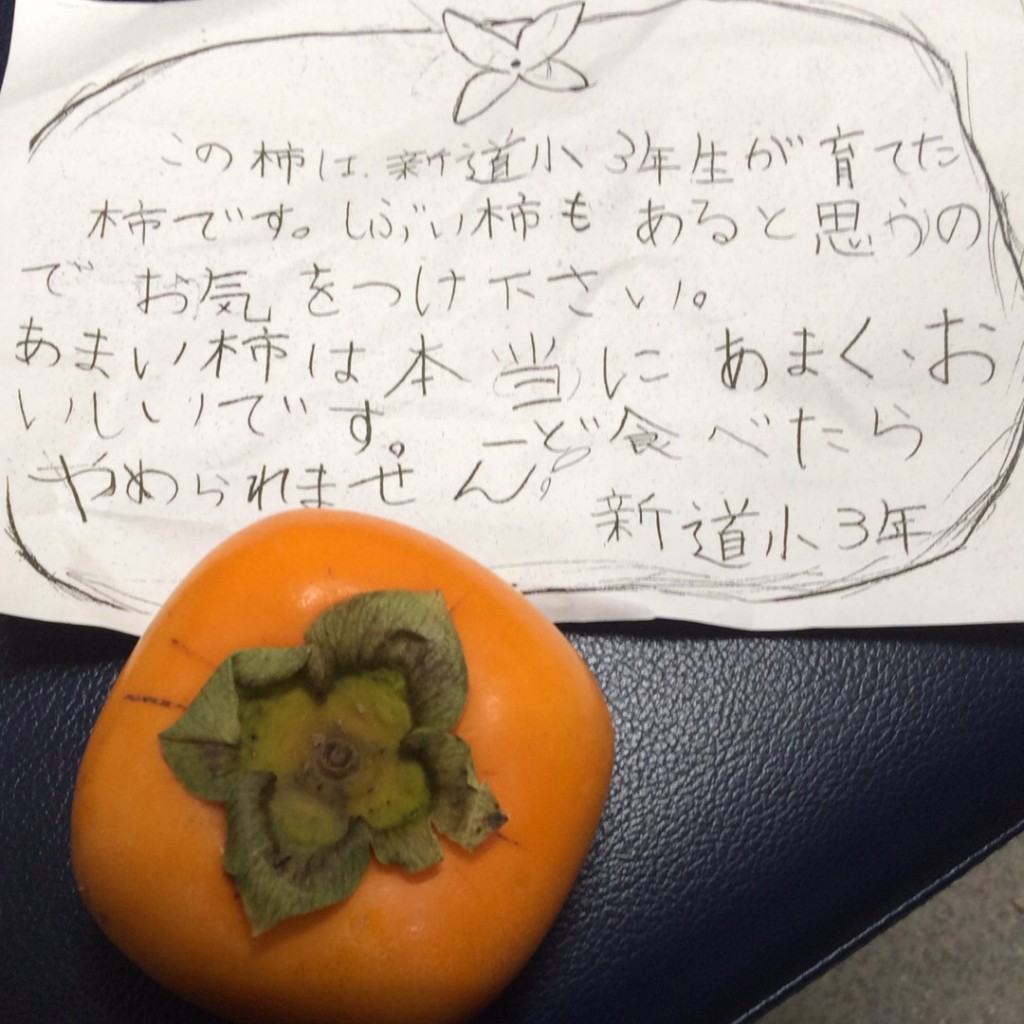 この柿は、新道小3年生が育てた
柿です。しぶい柿もあると思うの
でお気をつけ下さい。
あまい柿は本当にあまく、お
いしいです。一ど食べたら
やめられません。
新道小3年